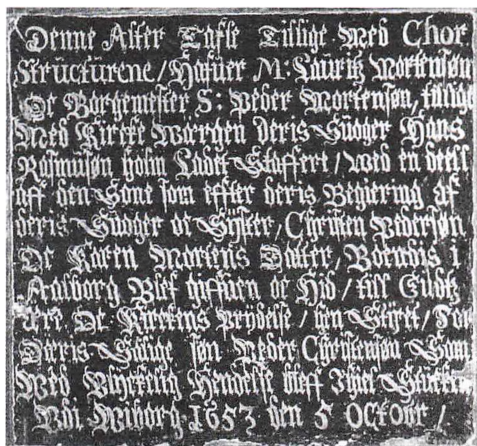 Denne Alter Tafle Tillige Med Chor
Structurene / Hafuer M: Lauritz Mortensøn
Oc Borgemester S: Peder Mortensøn, tillige
Med Kircke Wærgen deris Suoger Hans
Rasmusøn Holm Ladet Staffert / Med en deell
aff den Sone som effter deris Begiering af
deris Suoger oc Syster, Christen Pedersøn
Oc Karen Mortens Datter, Boendis i
Aalborg Blef giffuen oc Hid / till Gudtz
Ære Oc Kirckens Prydelse / hen Styret / For
Deris Salige søn Peder Christensøn Som
Med Wlyckelig Hendelse bleff Ihiel
Udi Wiborg 1653 den 5 Octobr /